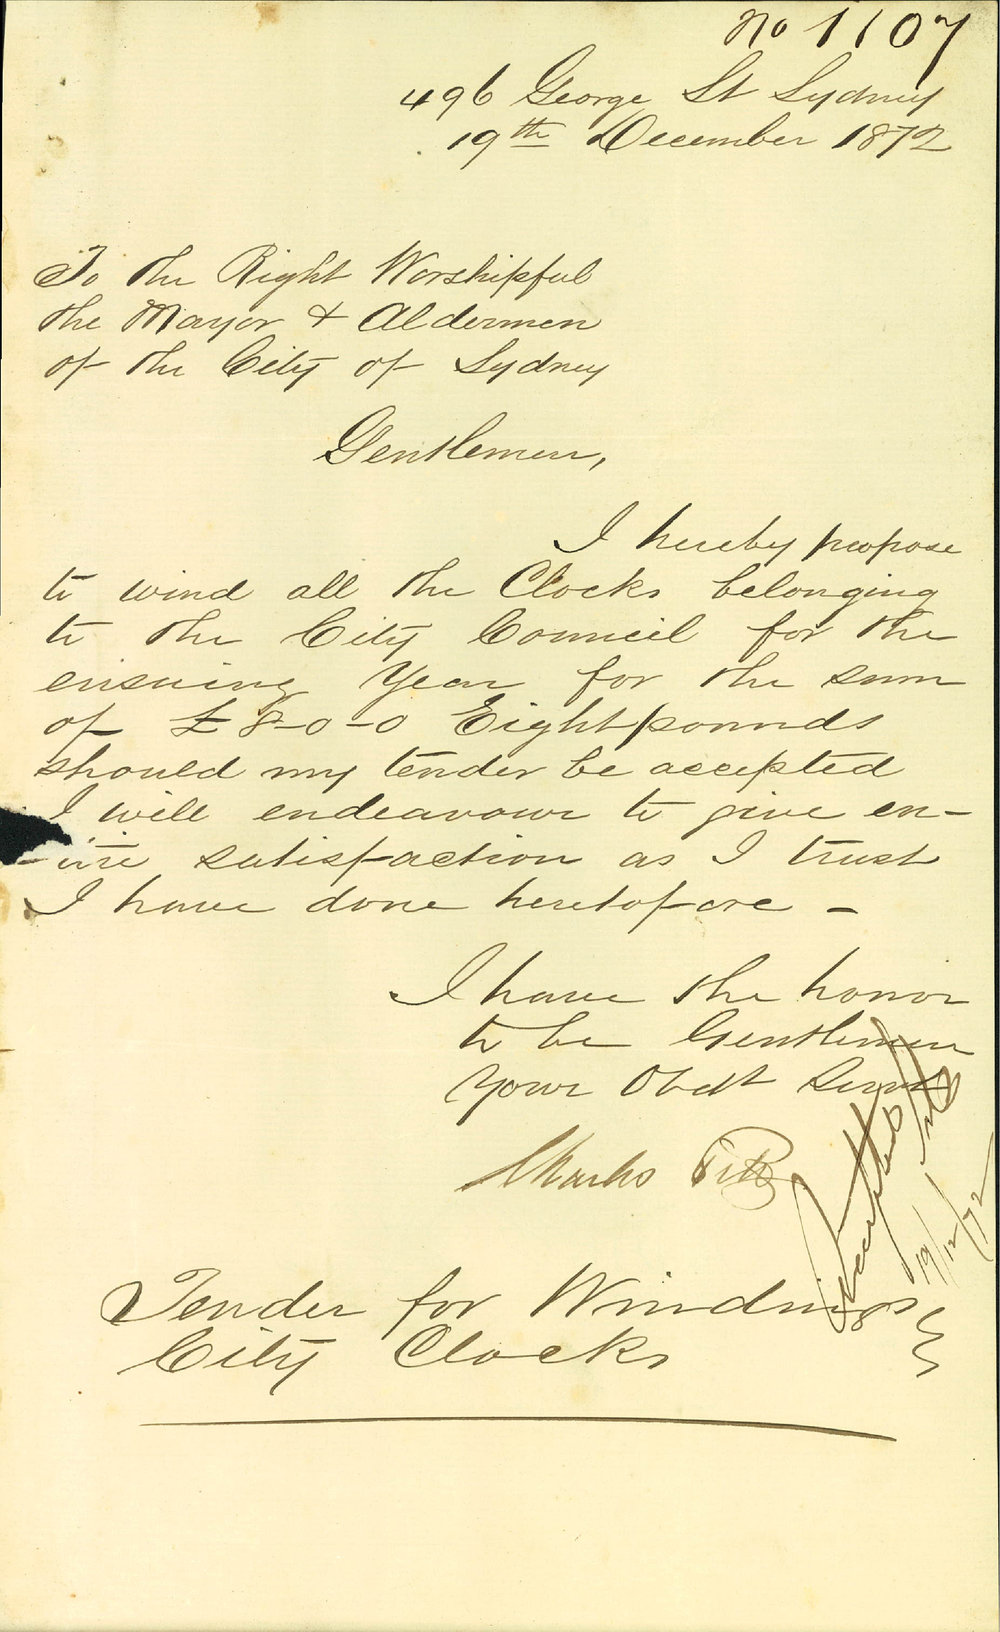 No 1107
496 George St Sydney
19th December 1872
To the Right Worshipful
the Mayor & Aldermen
of the City of Sydney
Gentlemen,
I hereby propose
to wind all the Clocks belonging
to the City Council for the
ensuing Year for the sum
of £8-0-0 Eight pounds
should my tender be accepted
I will endeavour to give en-
-tire satisfaction as I trust
I have done heretofore -
I have the honor
to be Gentlemen
Your Obdt Servt
Charles
Accepted
19/12/72
Tender for Winding
City Clocks